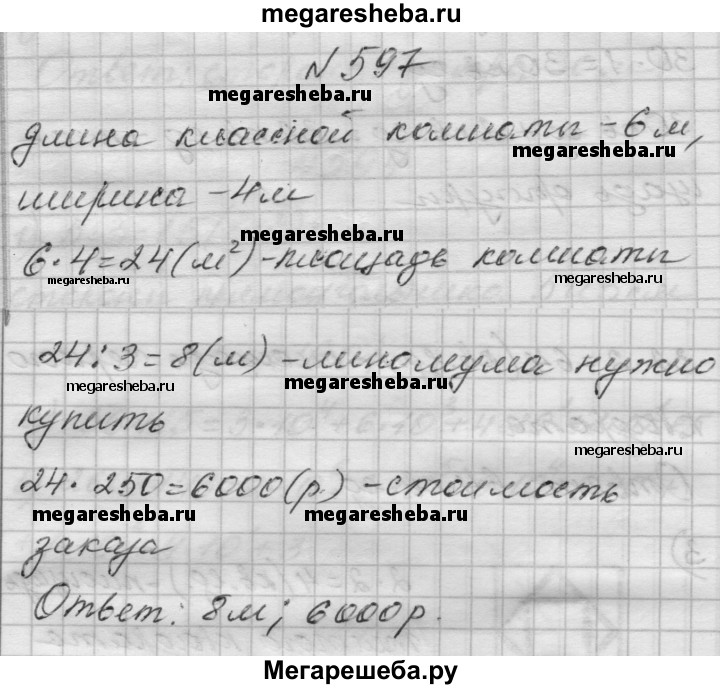 megaresheba.ru
№ 597
megaresheba.ru
длина классной комнаты - 6 м,
megaresheba.ru
ширина - 4 м
megaresheba.ru
6 · 4 = 24 (м²) - площадь комнаты
megaresheba.ru
megaresheba.ru
24 : 3 = 8 (м) - линолиума нужно
megaresheba.ru
megaresheba.ru
купить
megaresheba.ru
24 · 250 = 6000 (р.) - стоимость
megaresheba.ru
megaresheba.ru
заказа
Ответ: 8 м; 6000 р.
Мегарешеба.ру